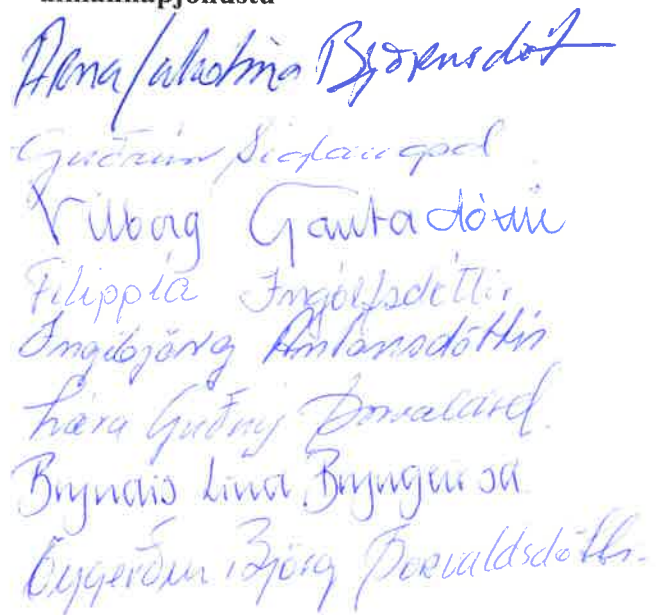 almannaþjónustu
Anna Jakobína Björnsdót
Guðrún Siglaugsd.
Vilborg Gautadóttir
Filippía Ingólfsdóttir
Ingibjörg Antonsdóttir
Lára Guðný Þorvaldsd.
Bryndís Lind Bryngeirsd
Björg Þorvaldsdóttir